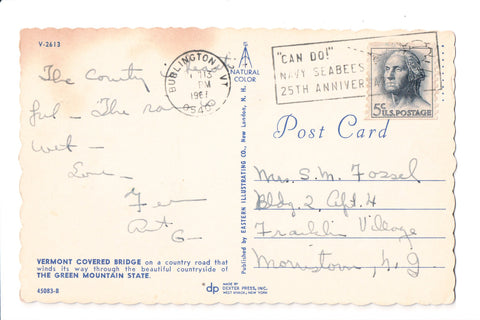 V-2613
The County
ful - The
wet -
Love -
G -
VERMONT COVERED BRIDGE on a country road that
winds its way through the beautiful countryside of
THE GREEN MOUNTAIN STATE.
45083-B
NATURAL
COLOR
Published by EASTERN ILLUSTRATING CO., New London, N. H.
dp MADE BY
DEXTER PRESS, INC.
WEST NYACK, NEW YORK
BURLINGTON, VT
PM
"CAN DO!"
NAVY SEABEES
25TH ANNIVER
5¢ U.S. POSTAGE
Post Card
Mrs. S. M. Fossel
Bldg. 2, Apt. 4
Franklin Village
Morristown, N.J